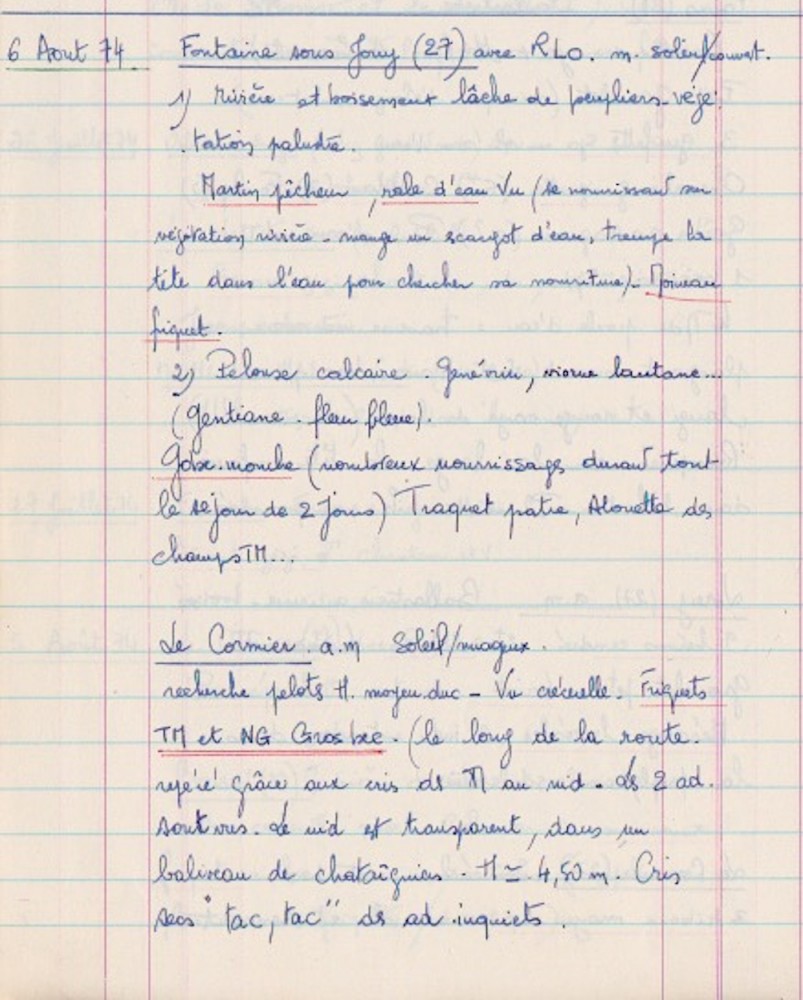 6 Aout 74 Fontaine sous Jouy (27) avec RLO. m. soleil/couvert.
1) Rivière et boisement lâche de peupliers - végé
tation palustre.
Martin pêcheur, rale d'eau Vu (se nourrissant sur
végétation rivière - mange un escargot d'eau, trempe la
tête dans l'eau pour chercher sa nourriture) - Moineau
friquet.
2) Pelouse calcaire. Genévrier, viorne lantane...
(Gentiane. fleur bleue).
Gobe.mouche (nombreux nourrissages durant tout
le séjour de 2 jours) Traquet patre, Alouette des
champs TM...
Le Cormier. a.m Soleil/nuageux.
recherche pelots H. moyen.duc - Vu crécerelle. Friquets
TM et NG Gros bec. (le long de la route.
repéré grâce aux cris ds au nid. Ls 2 ad.
sont vus. Le nid est transparent, dans un
baliveau de chataîgnier. H ≃ 4,50 m. Cris
secs "tac, tac" ds ad. inquiets.